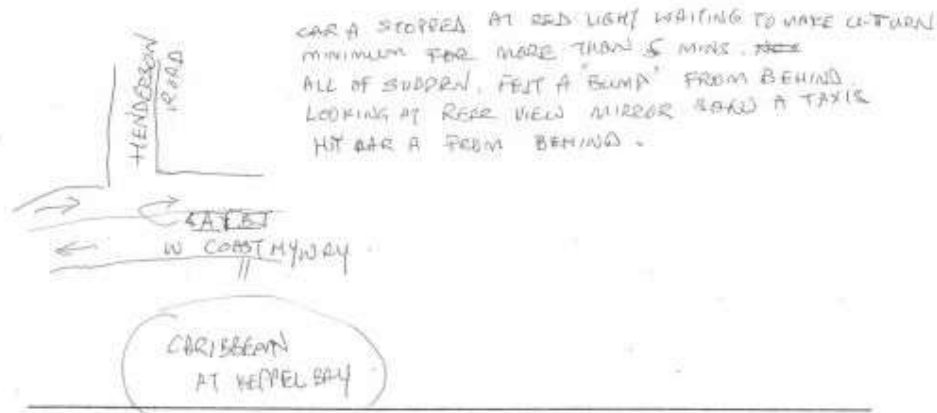 CAR A STOPPED AT RED LIGHT WAITING TO MAKE U-TURN
MINIMUM FOR MORE THAN 5 MINS.
ALL OF SUDDEN, FELT A "BUMP" FROM BEHIND.
LOOKING AT REAR VIEW MIRROR SAW A TAXIS
HIT CAR A FROM BEHIND.
HENDERSON
ROAD
A B
W COAST HYWAY
CARIBBEAN
AT KEPPEL BAY